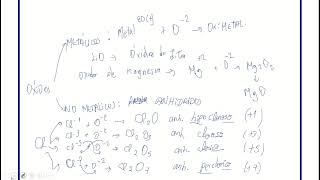 EO(+)
METÁLICOS: Metal + O⁻² → Oxi. METAL.
Li₂O → Óxido de Litio
Óxido de magnesio → Mg⁺² + O⁻² → Mg₂O₂
MgO
Óxidos
NO METÁLICOS: ANHIDRIDOS
Cl⁺¹ + O⁻² → Cl₂O anh. hipocloroso (+1)
Cl⁺³ + O⁻² → Cl₂O₃ anh. cloroso (+3)
Cl⁺⁵ + O⁻² → Cl₂O₅ anh. clórico (+5)
Cl⁺⁷ + O⁻² → Cl₂O₇ anh. perclórico (+7)